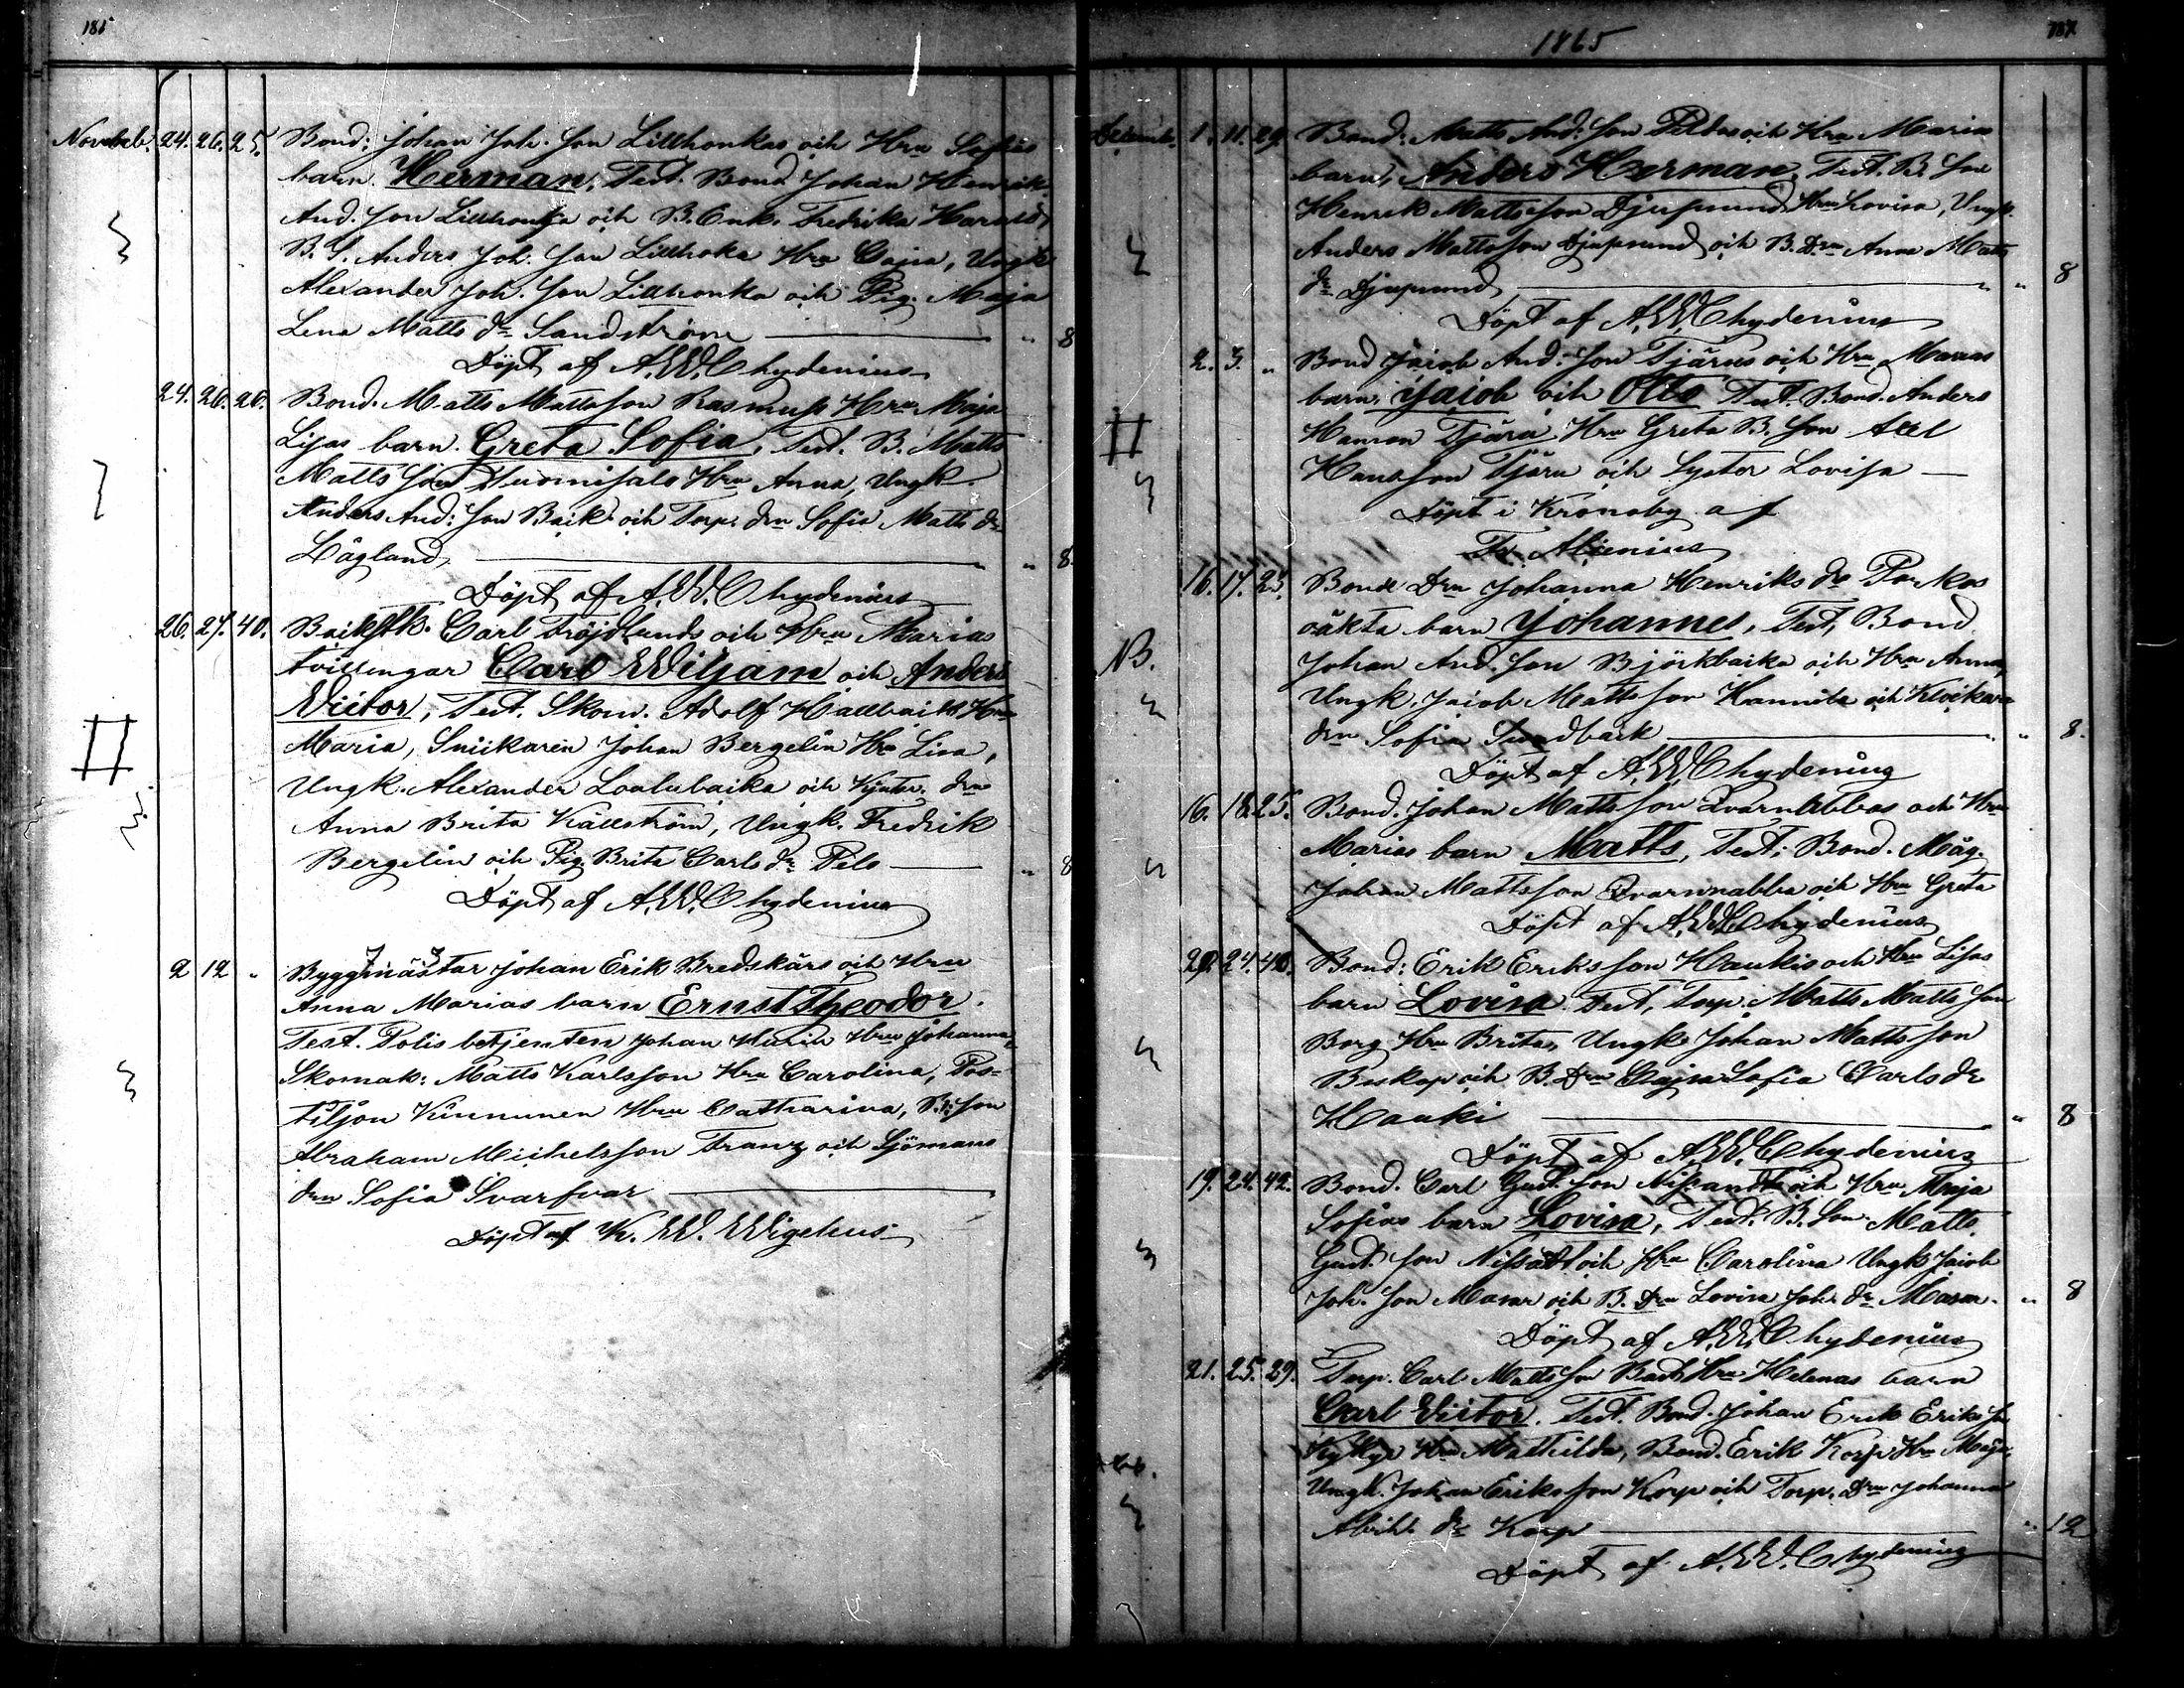 186
Novemb. 24. 26. 25. Bond: Johan Joh. Son Lillhonkas och Hru Sofias
barn. Herman, Test. Bond Johan Henrik
And. Son Lillhonka och B. Enk. Fredrika Harald,
B. S. Anders Joh. Son Lillhoka Hru Cajsa, Ungk
Alexander Joh. Son Lillhonka och Pig. Maja
Lena Matts dr Sandström " 8
Döpt af A.W. Chydenius
24. 26. 20. Bond. Matts Mattsson Rasmuss Hru Maja
Lisas barn. Greta Sofia, Test. B. Matts
Matts Son Suomisalo Hru Anna, Ungk.
Anders And: Son Back och Torp. drn Sofia Matts dr
Lågland " 8.
Döpt af A.W. Chydenius
26. 27. 40. Carl Fröjdlunds och Hru Marias
tvillingar Carl Wiljam och Anders
Victor, Test. Skom. Adolf Hallback Hru
Maria, Snickaren Johan Bergelin Hru Lisa,
Ungk. Alexander och drn
Anna Brita Källström, Ungk. Fredrik
Bergelin och Pig. Brita Carls dr Pels " 8
Döpt af A.W. Chydenius
2 12 " Byggmästar Johan Erik Bredskärs och Hru
Anna Marias barn Ernst Theodor.
Test. Polis betjenten Johan Hru Johanna,
Skomak: Matts Karlsson Hru Carolina, Pos-
tiljon Kinnunen Hru Catharina, B. Son
Abraham Michelsson Franz och Sjömans
drn Sofia Svarfvar
Döpt af K. W. Wigelius
1865
187
Decemb. 1. 11. 29. Bond: Matts And: Son Peldos och Hru Marias
barn, Anders Herman, Test. B. Son
Henrik Mattsson Djupsund Hru Lovisa, Ungk.
Anders Mattsson Djupsund och B. Drn Anna Matts
dr Djupsund " " 8
Döpt af A.W. Chydenius
2. 3. " Bond Jacob And: Son Tjärus och Hru Marias
barn, Jacob och Otto Test. Bond. Anders
Hansson Tjäru Hru Greta B. Son Axel
Hansson Tjäru och Syster Lovisa
Döpt i Kronoby af
Fr. Alcenius
16. 17. 23. Bond Drn Johanna Henriks dr Porkos
oäkta barn Johannes, Test, Bond
Johan And. Son Björkbacka och Hru Anna,
NB. Ungk. Jacob Matts son Hannila och
drn Sofia Sundback " 8.
Döpt af A.W. Chydenius
16. 18. 25. Bond. Johan Matts Son Qvarnabbas och Hru
Marias barn Matts, Test; Bond. Måg.
Johan Mattsson Qvarnnabba och Hru Greta
Döpt af A.W. Chydenius
20. 24. 40. Bond: Erik Eriksson Haukis och Hru Lisas
barn Lovisa Test, Torp. Matts Matts Son
Borg Hru Brita, Ungk Johan Mattsson
Biskop och B. Drn Cajsa Sofia Carls dr
Hauki " 8
Döpt af A.W. Chydenius
19. 24. 42. Bond. Carl Gust. Son och Hru Maja
Sofias barn Lovisa, Test. B. Son Matts
Gust. Son och Hru Carolina Ungk Jacob
Joh. Son Masar och B. Drn Lovisa Joh. dr Masar. " 8
Döpt af A.W. Chydenius
21. 25. 29. Torp. Carl Matts Son Back Hru Helenas barn
Carl Victor. Test. Bond. Johan Erik Eriks Son
Kykyr Hru Mathilda, Bond. Erik Korp Hru Maja,
Ungk. Johan Eriksson Korp och Torp. Drn Johanna
dr Korp " 12
Döpt af A.W. Chydenius